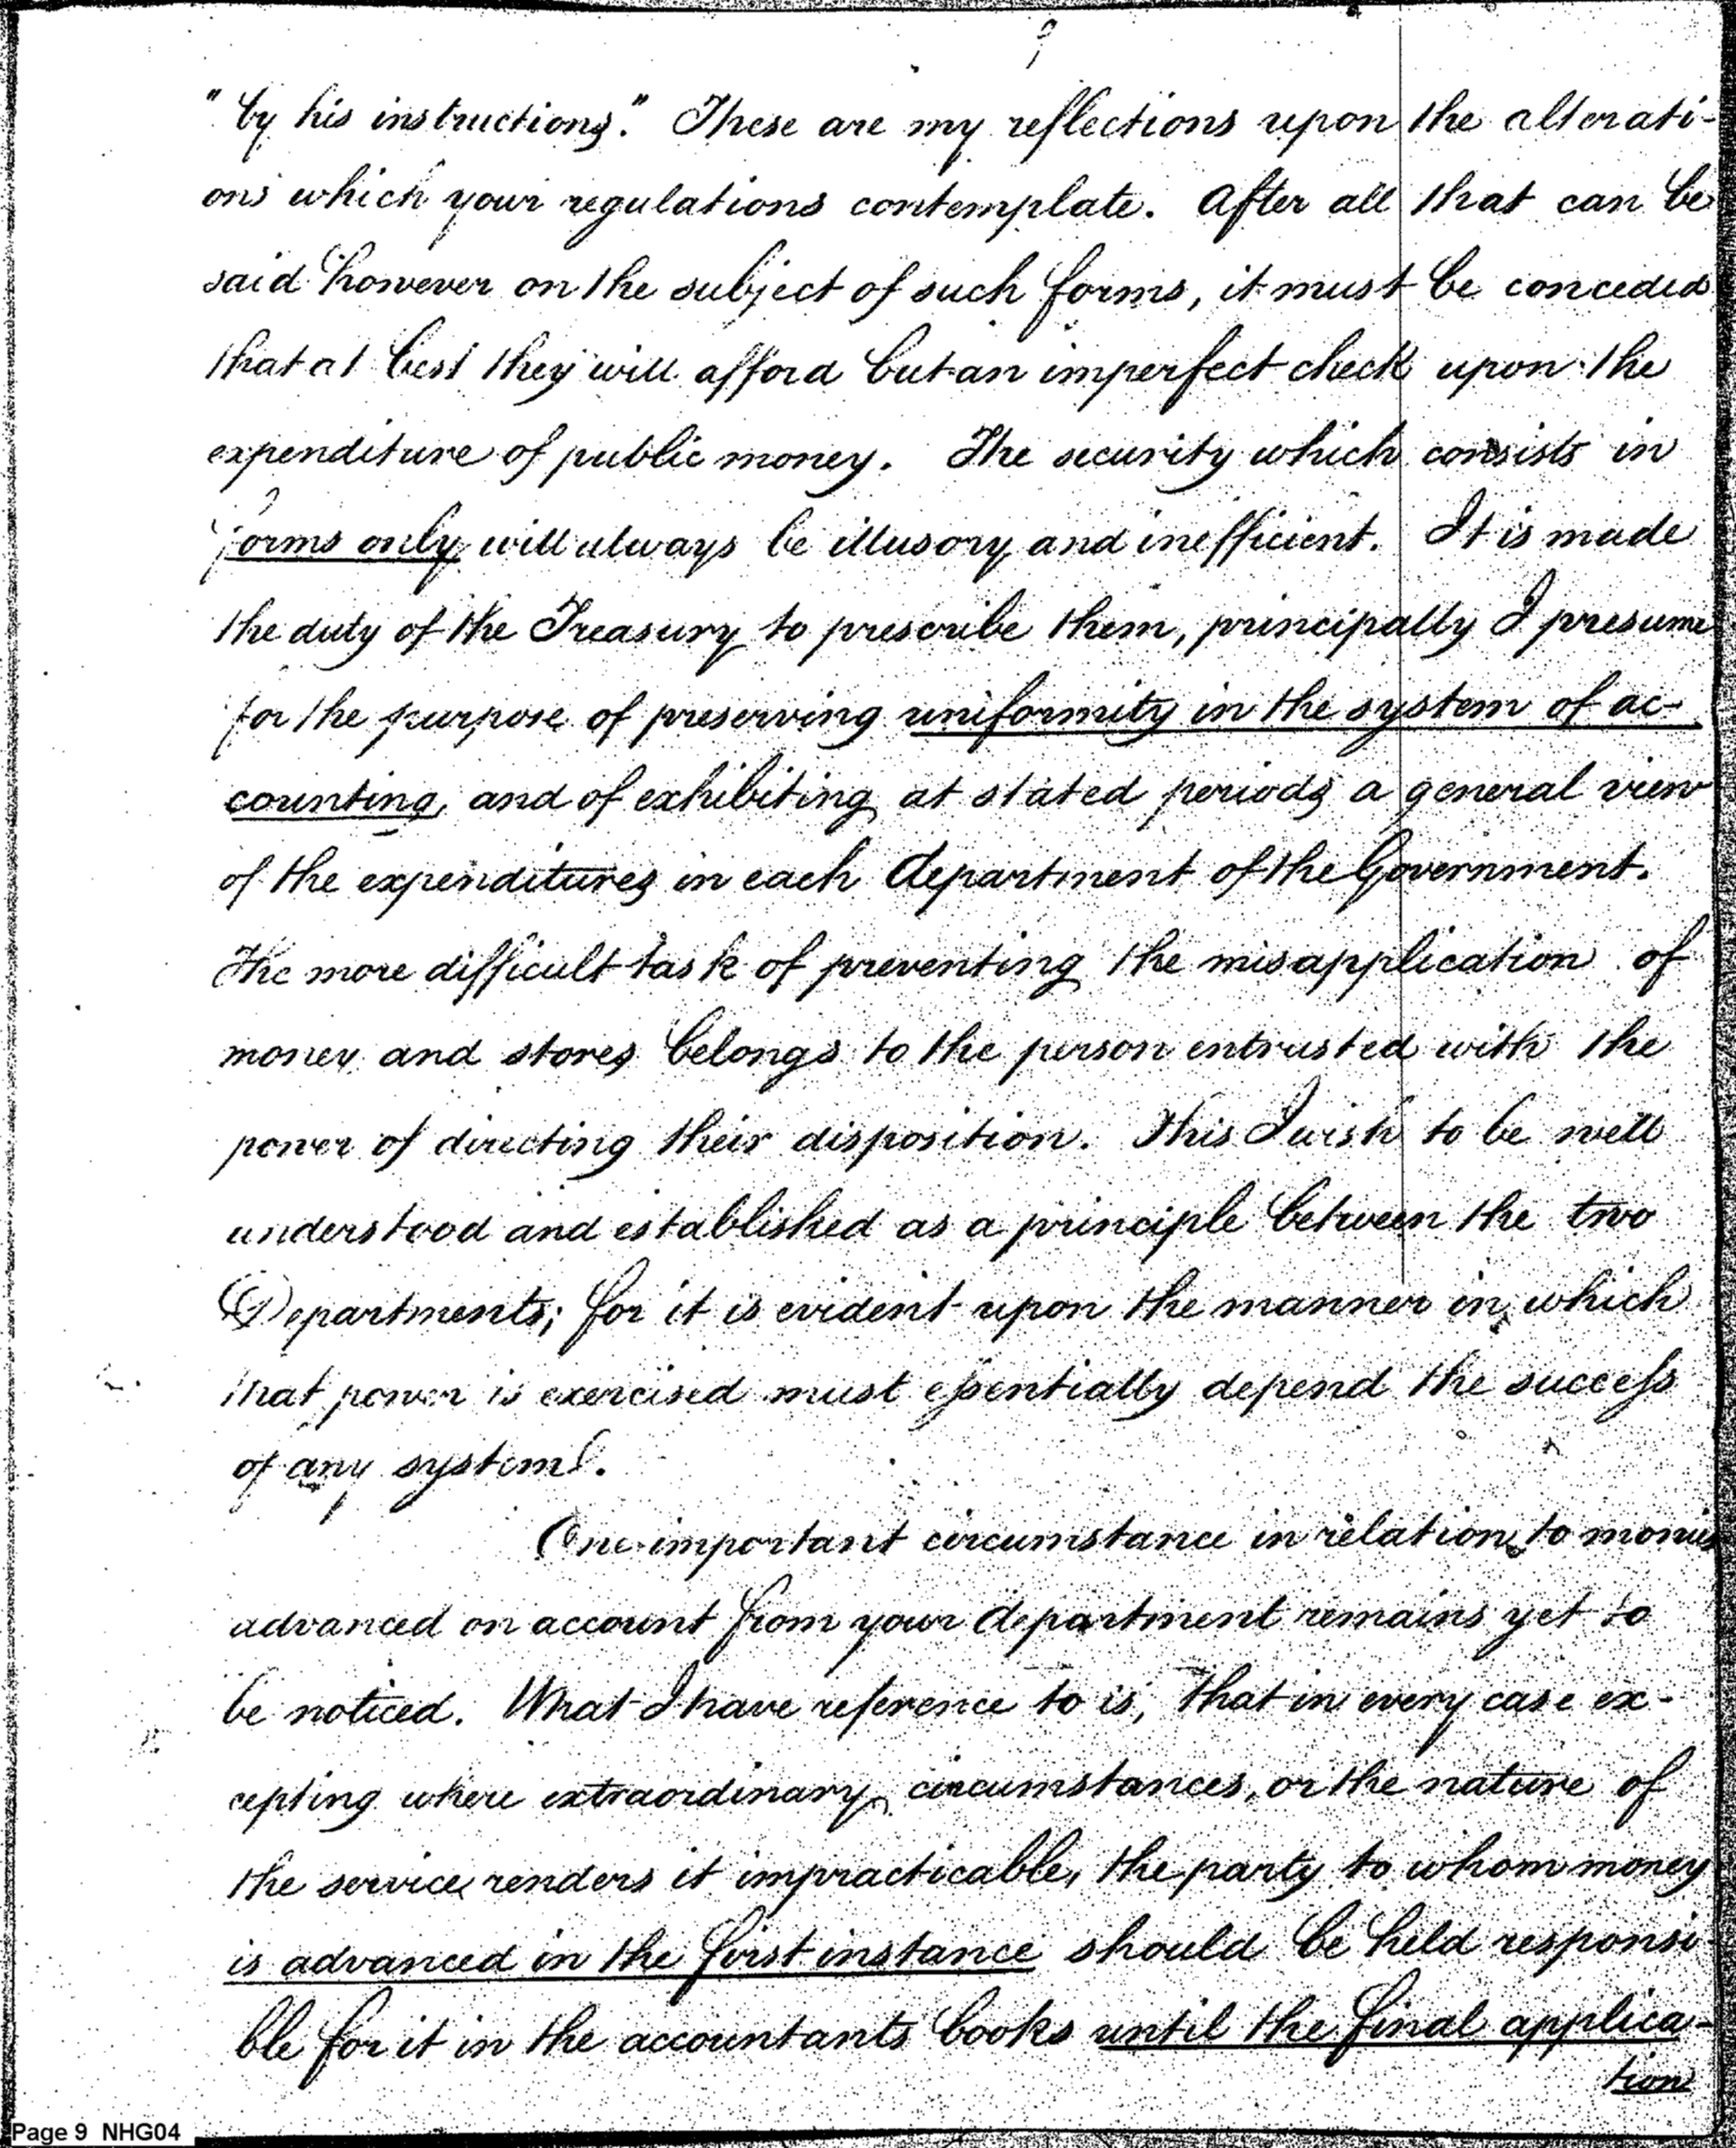 9
" by his instructions." These are my reflections upon the alterati-
ons which your regulations contemplate. After all that can be
said however on the subject of such forms, it must be conceded
that at best they will afford but an imperfect check upon the
expenditure of public money. The security which consists in
forms only will always be illusory and inefficient. It is made
the duty of the Treasury to prescribe them, principally I presume
for the purpose of preserving uniformity in the system of ac-
counting, and of exhibiting at stated periods a general view
of the expenditures in each department of the Government.
The more difficult task of preventing the misapplication of
money and stores belongs to the person entrusted with the
power of directing their disposition. This I wish to be well
understood and established as a principle between the two
Departments; for it is evident upon the manner in which
that power is exercised must essentially depend the success
of any system.
One important circumstance in relation to monies
advanced on account from your department remains yet to
be noticed. What I have reference to is, that in every case ex-
cepting where extraordinary circumstances, or the nature of
the service renders it impracticable, the party to whom money
is advanced in the first instance should be held responsi-
ble for it in the accountants books until the final applica-
tion
Page 9 NHG04